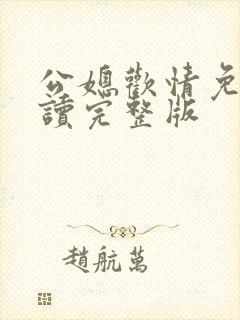 公媳歡情免
讀完整版
趙航萬